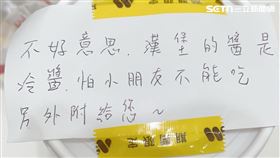 SETN 三立新聞網
不好意思. 漢堡的醬是
冷醬. 怕小朋友不能吃
另外附給您~